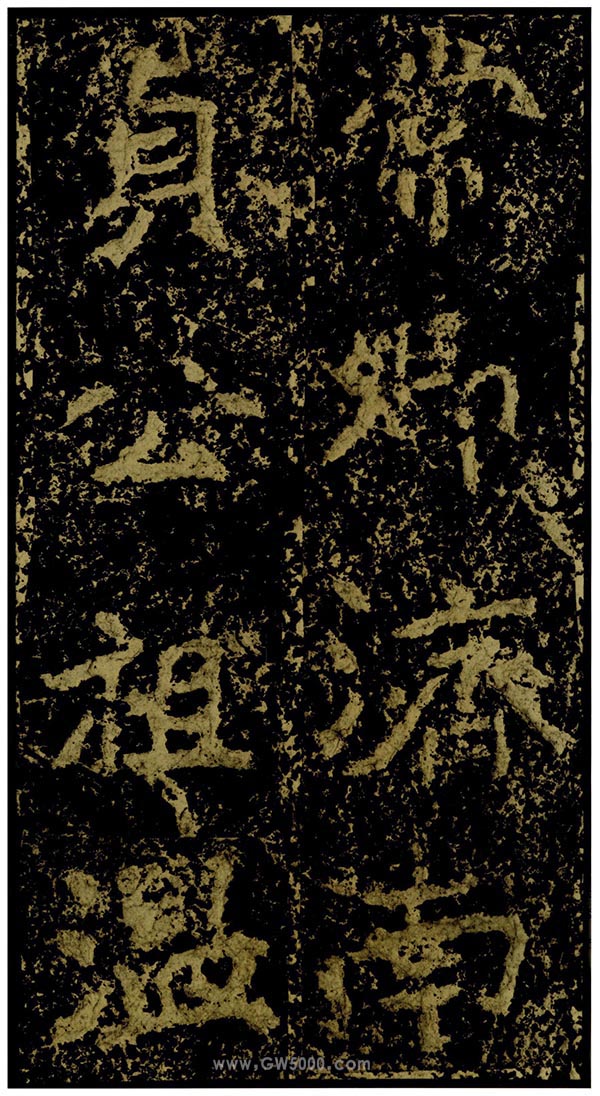 常卿濟南
貞公祖溫
www.GW5000.com